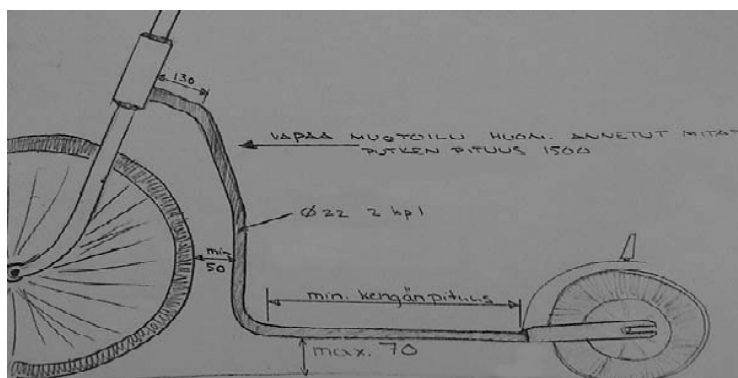 130
VAPAA MUOTOILU HUOM. ANNETUT MITAT
PUTKEN PITUUS 1500
Ø22 2 kpl
min
50
min. kengänpituus
max. 70